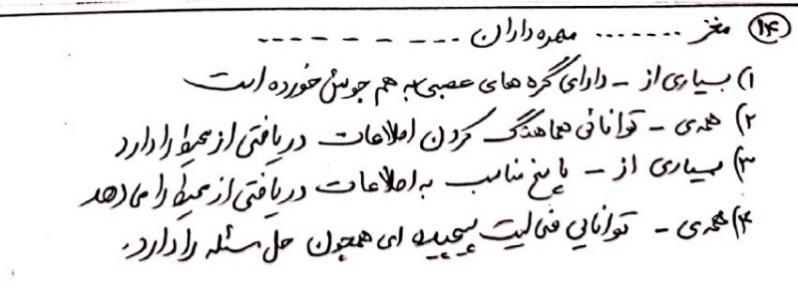 ۱۴) مغز ....... مهره داران ---------
۱) بسیاری از - دارای گره های عصبی به هم جوش خورده است
۲) همه ی - توانائی هماهنگ کردن اطلاعات دریافتی از محیط را دارد
۳) بسیاری از - پاسخ مناسب به اطلاعات دریافتی از محیط را می دهد
۴) همه ی - توانایی فعالیت پیچیده ای همچون حل مسئله را دارد.